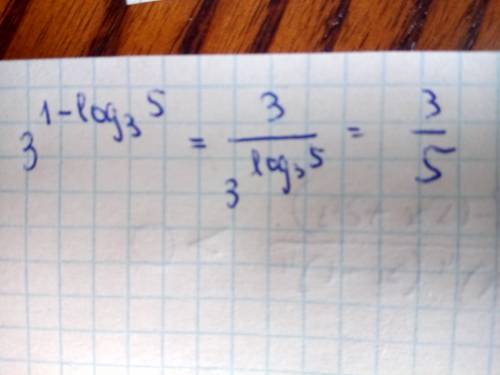 3^{1-log_3 5} = \frac{3}{3^{log_3 5}} = \frac{3}{5}